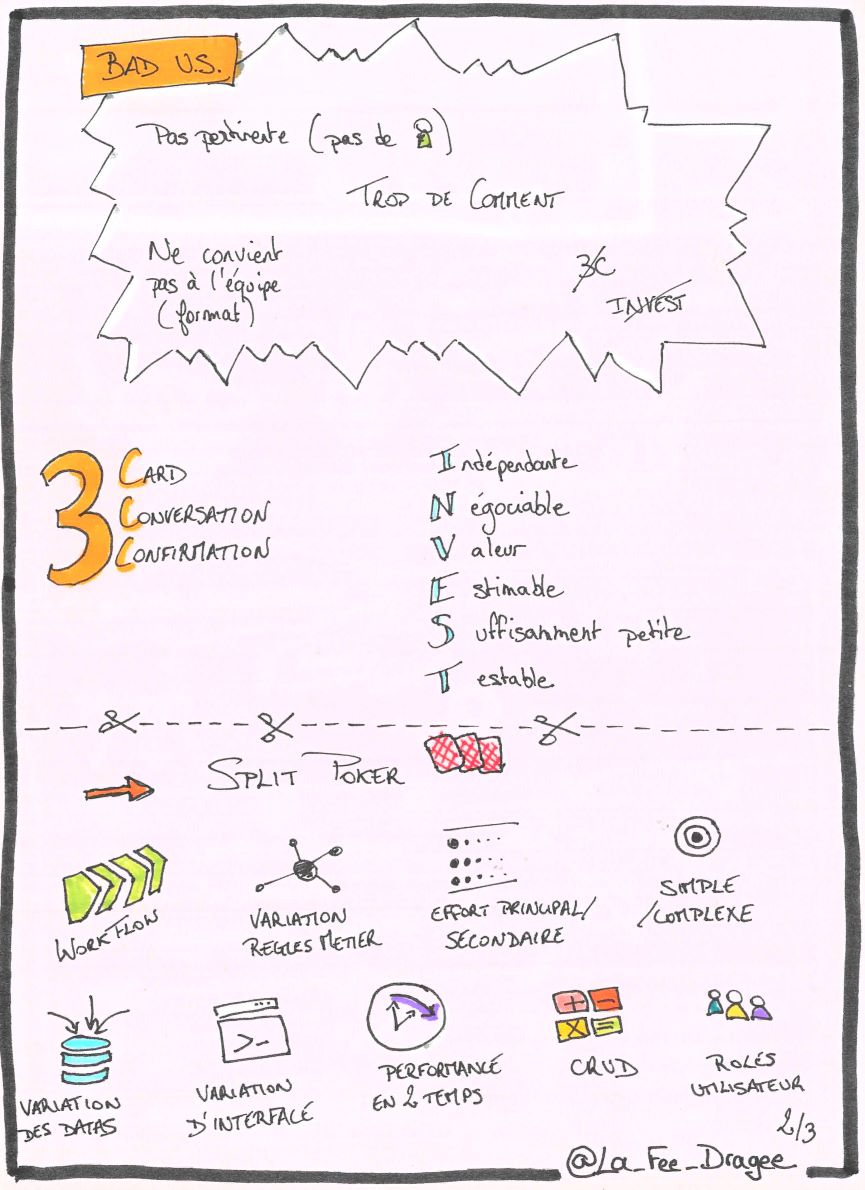 BAD U.S.
Pas pertinente (pas de )
TROP DE COMMENT
Ne convient
pas à l'équipe
(format)
3C
INVEST
3
CARD
CONVERSATION
CONFIRMATION
Indépendante
Négociable
Valeur
Estimable
Suffisamment petite
Testable
SPLIT POKER
WORKFLOW
VARIATION
REGLES METIER
EFFORT PRINCIPAL/
SECONDAIRE
SIMPLE
/COMPLEXE
VARIATION
DES DATAS
VARIATION
D'INTERFACE
PERFORMANCE
EN 2 TEMPS
CRUD
ROLES
UTILISATEUR
2/3
@La_Fee_Dragee